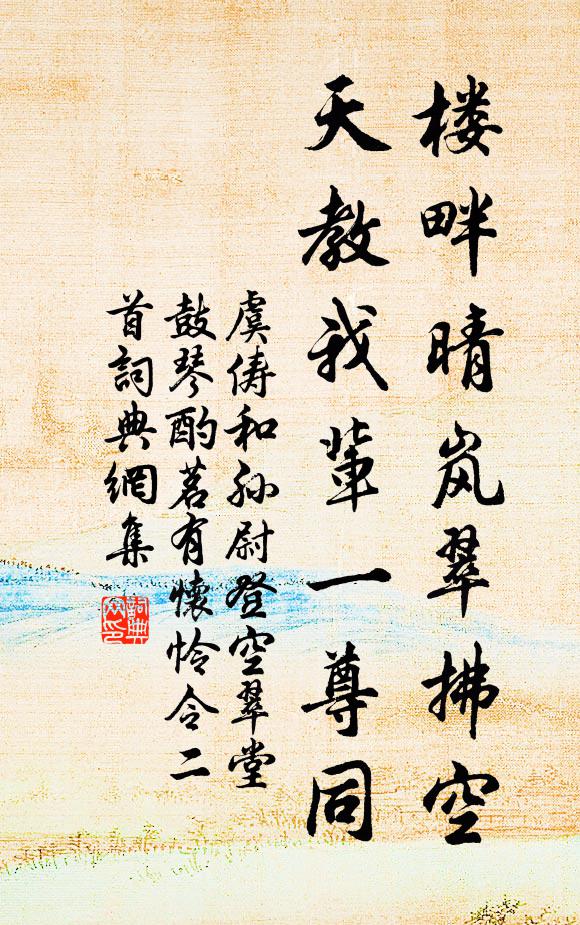 楼畔晴岚翠拂空
天教我辈一尊同
虞俦和孙尉登空翠堂
鼓琴酌茗有懷怜令二
首詞典網集
詞典
网印